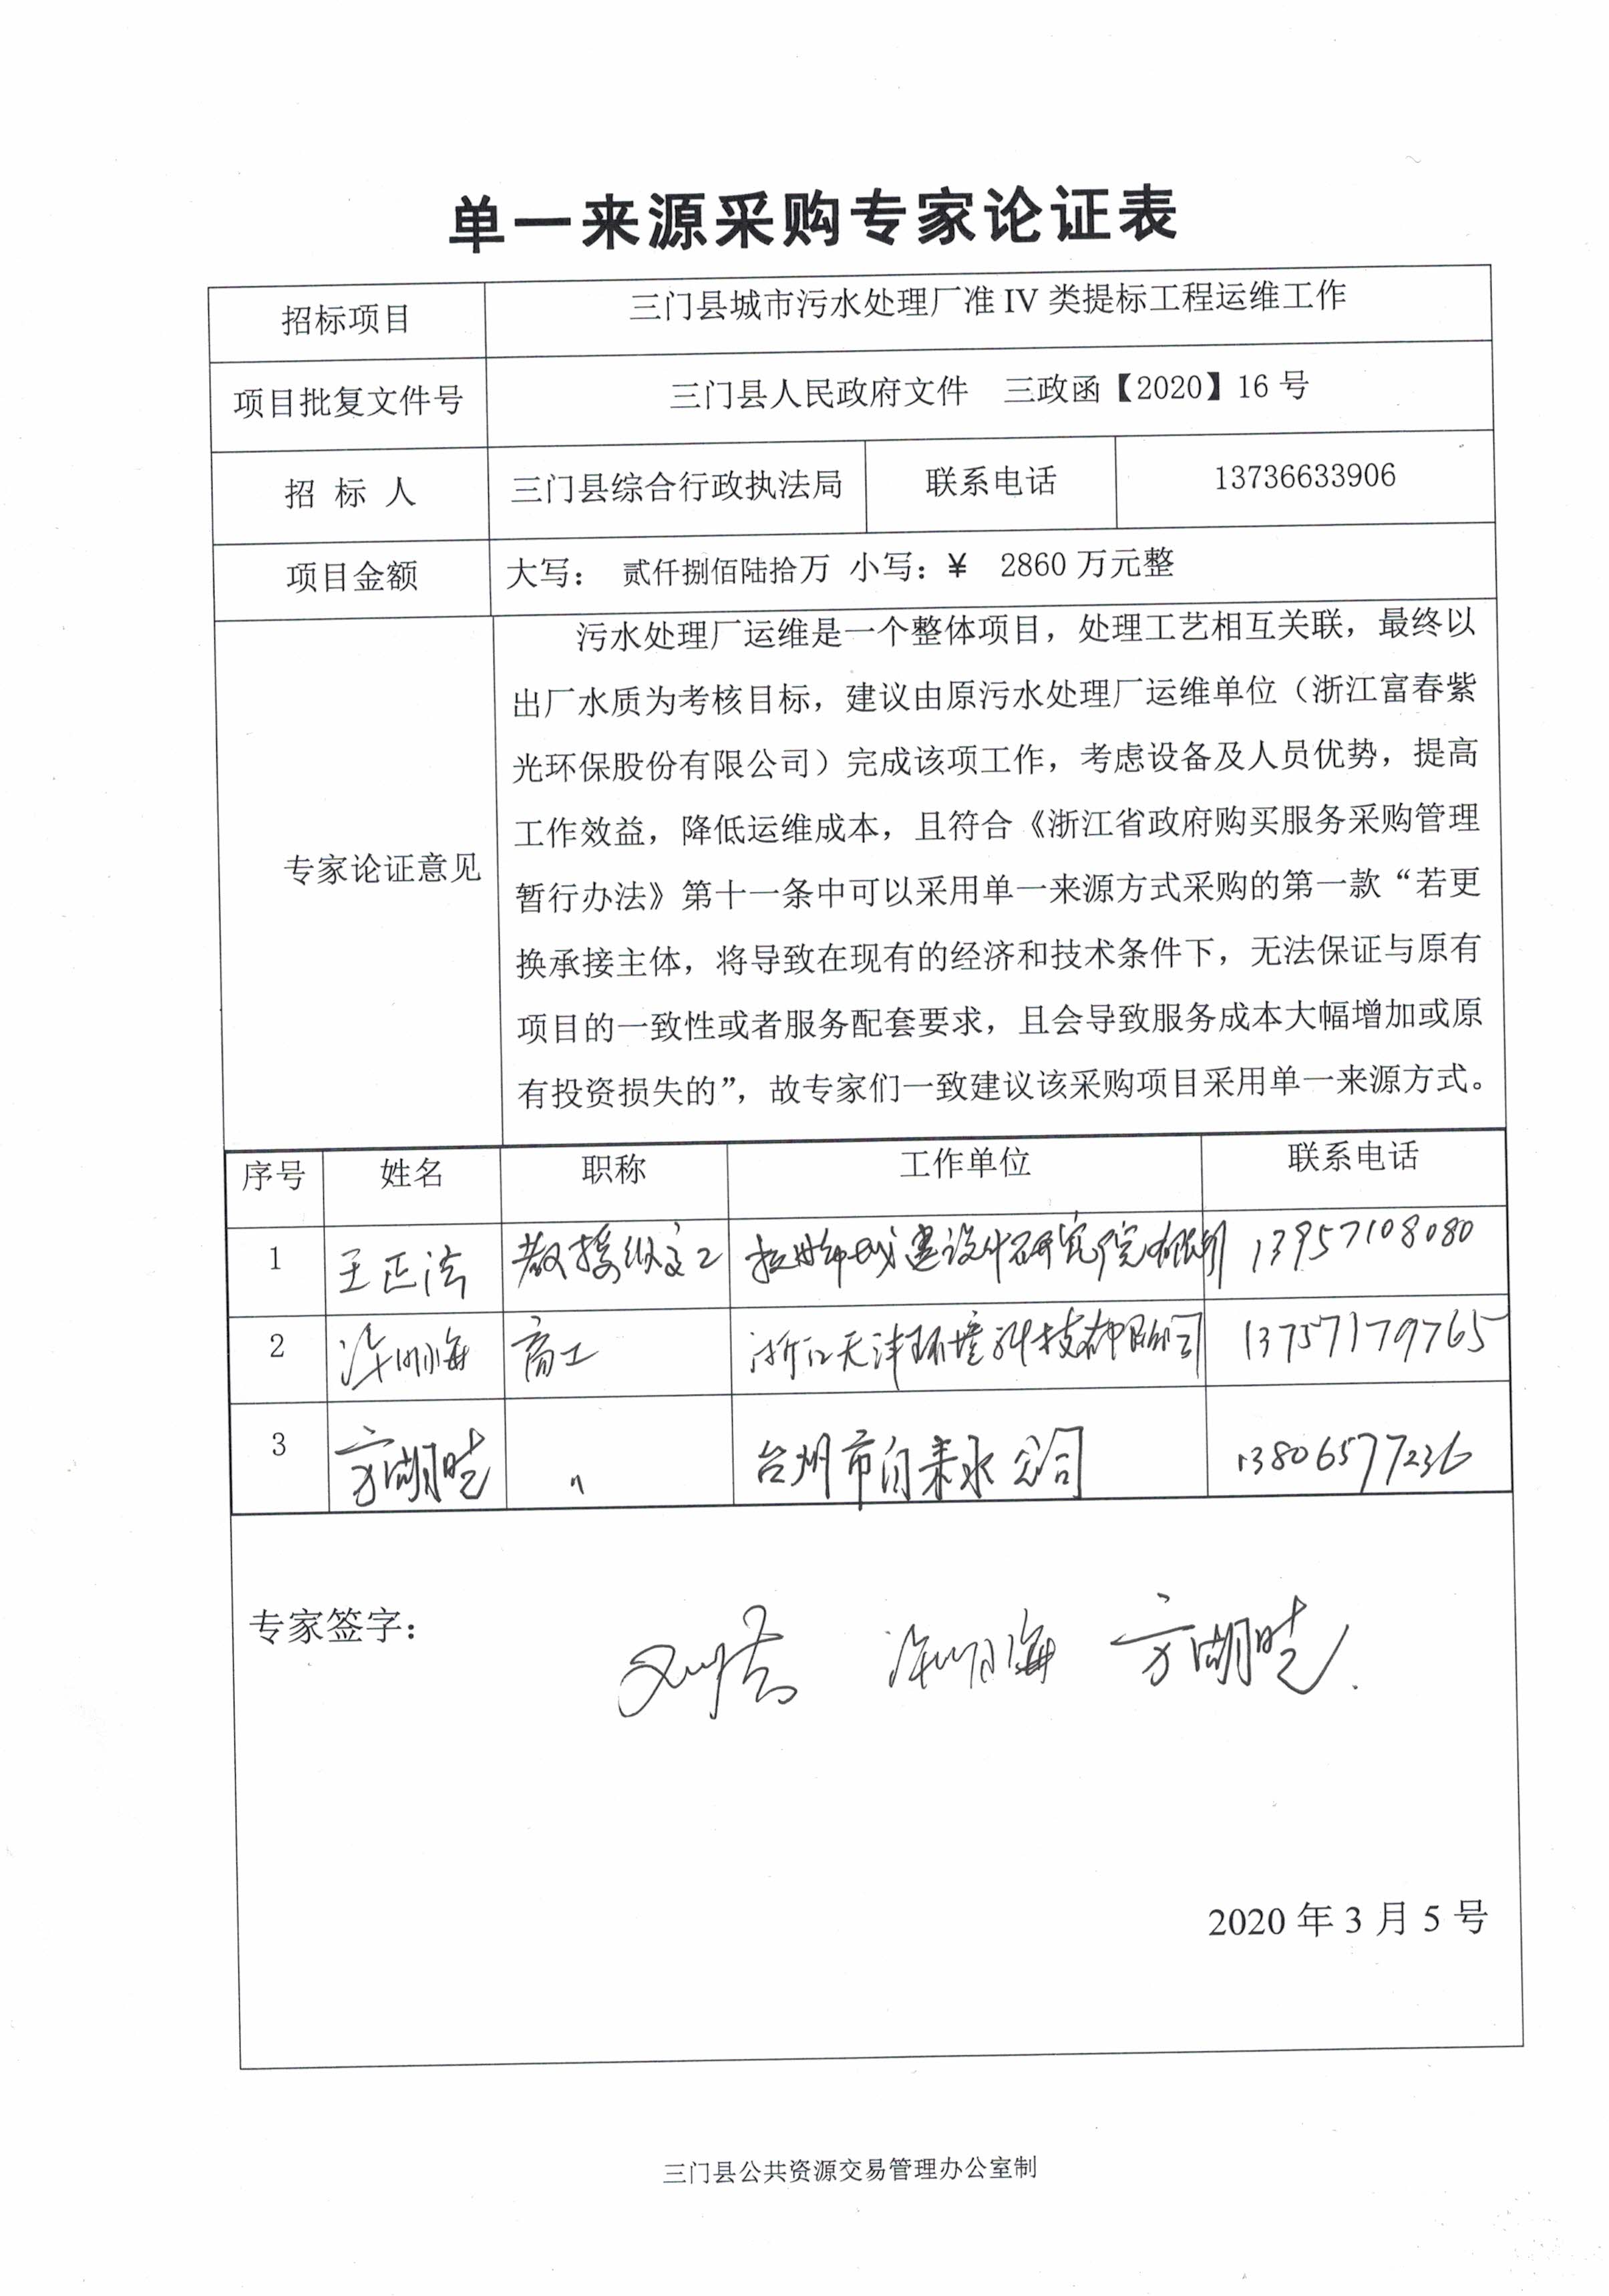 单一来源采购专家论证表
招标项目 三门县城市污水处理厂准IV类提标工程运维工作
项目批复文件号 三门县人民政府文件 三政函【2020】16号
招 标 人 三门县综合行政执法局 联系电话 13736633906
项目金额 大写： 贰仟捌佰陆拾万 小写：¥ 2860万元整
专家论证意见
污水处理厂运维是一个整体项目，处理工艺相互关联，最终以
出厂水质为考核目标，建议由原污水处理厂运维单位（浙江富春紫
光环保股份有限公司）完成该项工作，考虑设备及人员优势，提高
工作效益，降低运维成本，且符合《浙江省政府购买服务采购管理
暂行办法》第十一条中可以采用单一来源方式采购的第一款“若更
换承接主体，将导致在现有的经济和技术条件下，无法保证与原有
项目的一致性或者服务配套要求，且会导致服务成本大幅增加或原
有投资损失的”，故专家们一致建议该采购项目采用单一来源方式。
序号 姓名 职称 工作单位 联系电话
1 王正浩 教授级高工 城建设计研究院有限公司 13957108080
2 明海 高工 浙江天沣环境科技有限公司 13757179765
3 方湖晓 〃 台州市自来水公司 13806577236
专家签字： 明海 方湖晓
2020年3月5号
三门县公共资源交易管理办公室制